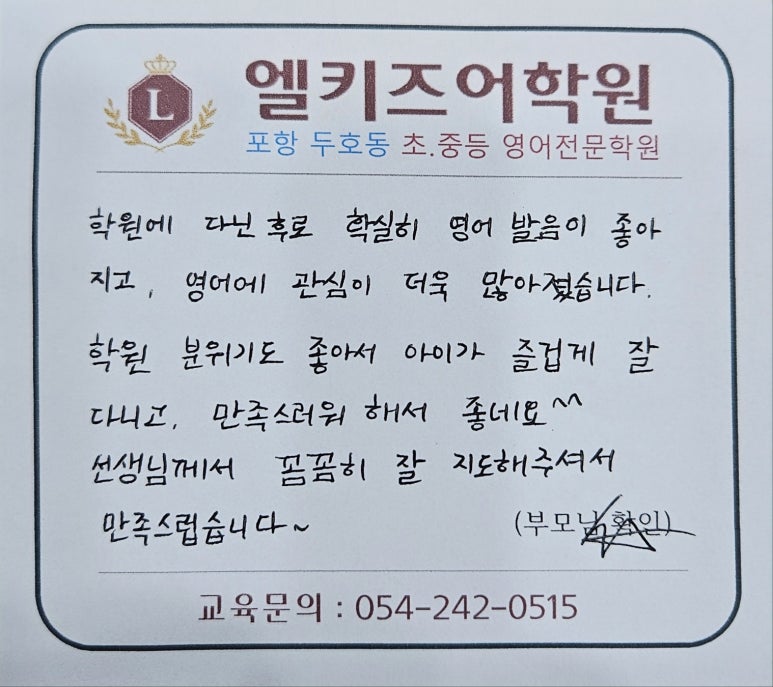 L
엘키즈어학원
포항 두호동 초.중등 영어전문학원
학원에 다닌 후로 확실히 영어 발음이 좋아
지고, 영어에 관심이 더욱 많아졌습니다.
학원 분위기도 좋아서 아이가 즐겁게 잘
다니고, 만족스러워 해서 좋네요^^
선생님께서 꼼꼼히 잘 지도해주셔서
만족스럽습니다~
(부모님 확인)
교육문의 : 054-242-0515